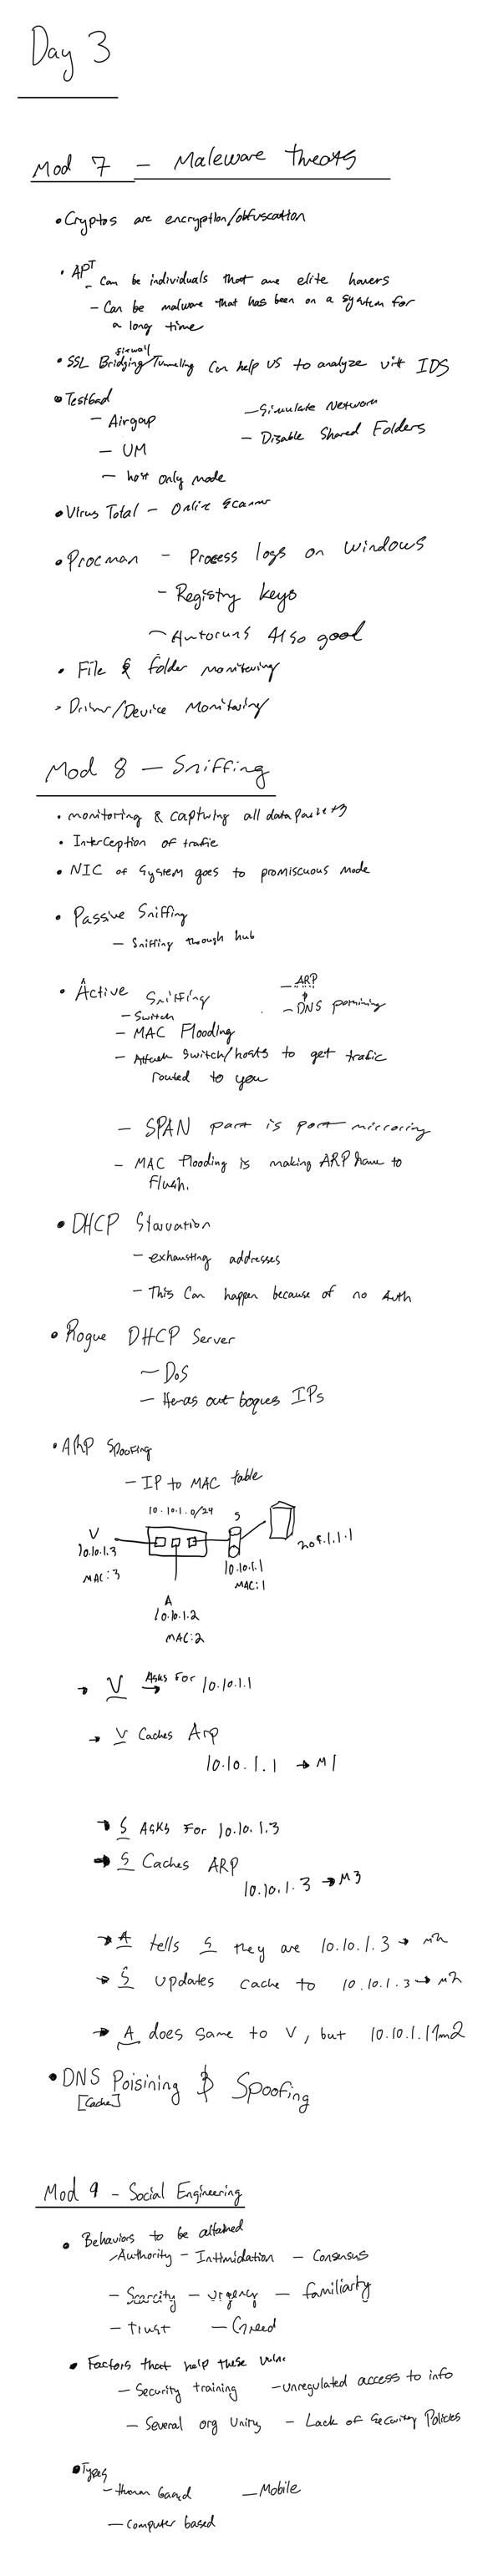 Day 3
Mod 7 - Maleware threats
• Cryptos are encryption/obfuscation
• APT
- Can be individuals that are elite haxers
- Can be malware that has been on a system for
a long time
firewall
• SSL Bridging/Tunneling Can help us to analyze with IDS
• Testbad
- Airgap
- Simulate Network
- VM
- Disable Shared Folders
- host only mode
• Virus Total - Online Scanner
• Procman - Process logs on windows
- Registry keys
- Autoruns Also good
• File & folder monitering
• Driver/Device Monitoring
Mod 8 - Sniffing
• monitoring & capturing all data packets
• Interception of trafic
• NIC of System goes to promiscuous mode
• Passive Sniffing
- Sniffing through hub
• Active Sniffing
- ARP
- Switch
- DNS poisining
- MAC Flooding
- Attack Switch/hosts to get trafic
routed to you
- SPAN port is port mirroring
- MAC flooding is making ARP have to
flush.
• DHCP Starvation
- exhausting addresses
- This Can happen because of no Auth
• Rogue DHCP Server
- DoS
- out IPs
• ARP Spoofing
- IP to MAC table
10.10.1.0/24
S
V
10.10.1.3
MAC:3
10.10.1.1
MAC:1
A
10.10.1.2
MAC:2
→ V Asks For 10.10.1.1
→ V Caches Arp
10.10.1.1 → M1
→ S Asks For 10.10.1.3
→ S Caches ARP
10.10.1.3 → M3
→ A tells S they are 10.10.1.3 → m2
→ S updates cache to 10.10.1.3 → m2
→ A does same to V, but 10.10.1.1 m2
• DNS Poisining & Spoofing
[Cache]
Mod 9 - Social Engineering
• Behaviors to be attained
- Authority - Intimidation - Consensus
- Scarcity - urgency - familiarty
- trust - Greed
• Factors that help these vulns
- Security training - unregulated access to info
- Several org Units - Lack of Security Policies
• Types
- Human based - Mobile
- Computer based